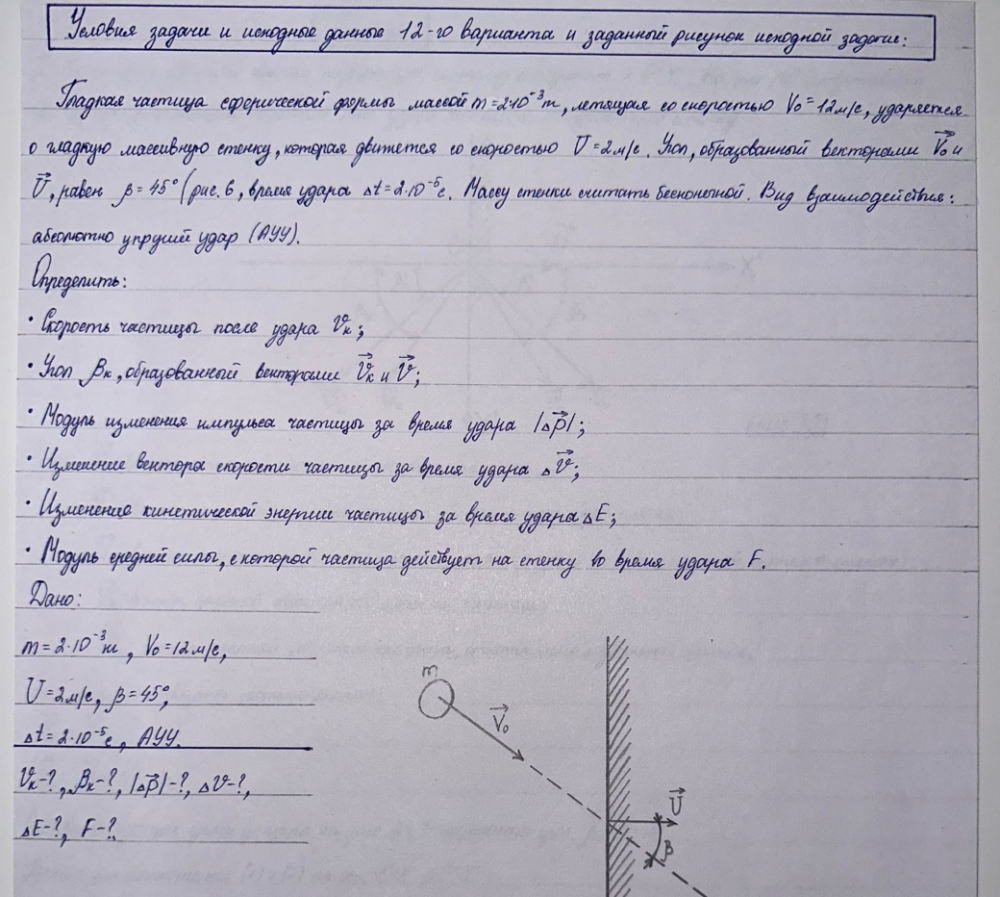 Условия задачи и исходные данные 12-го варианта и заданный рисунок исходной задачи:
Гладкая частица сферической формы массой m=2·10⁻³т, летящая со скоростью V₀=12м/с, ударяется
о гладкую массивную стенку, которая движется со скоростью U=2м/с. Угол, образованный векторами V₀ и
U, равен β=45° (рис. 6, время удара Δt=2·10⁻⁵с. Массу стенки считать бесконечной. Вид взаимодействия:
абсолютно упругий удар (АУУ).
Определить:
· Скорость частицы после удара υₖ;
· Угол βₖ, образованный векторами υₖ и υ;
· Модуль изменения импульса частицы за время удара |Δp|;
· Изменение вектора скорости частицы за время удара Δυ;
· Изменение кинетической энергии частицы за время удара ΔE;
· Модуль средней силы, с которой частица действует на стенку во время удара F.
Дано:
m=2·10⁻³т, V₀=12м/с,
U=2м/с, β=45°,
Δt=2·10⁻⁵с, АУУ.
υₖ-?, βₖ-?, |Δp|-?, Δυ-?,
ΔE-?, F-?
m
V₀
U
β